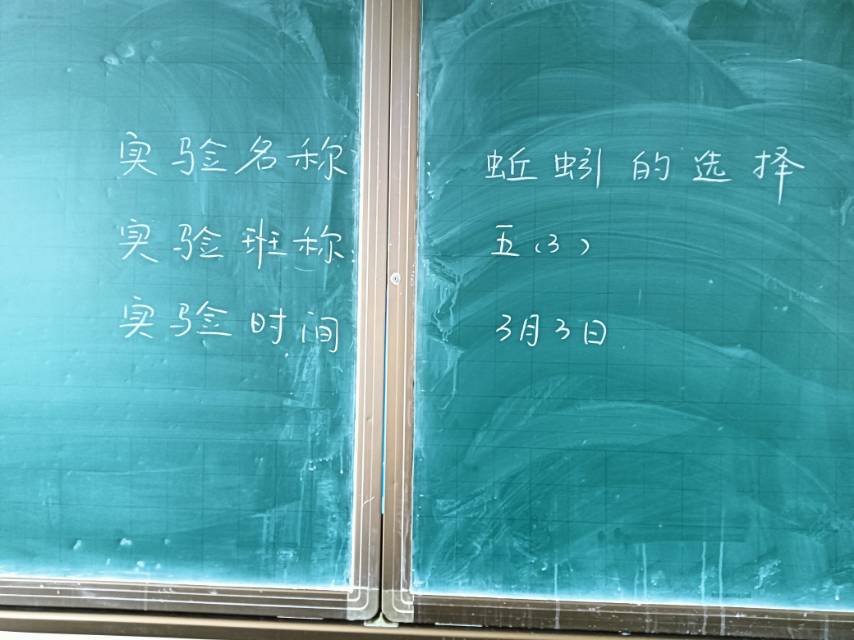 实验名称：蚯蚓的选择
实验班称：五（3）
实验时间 3月3日